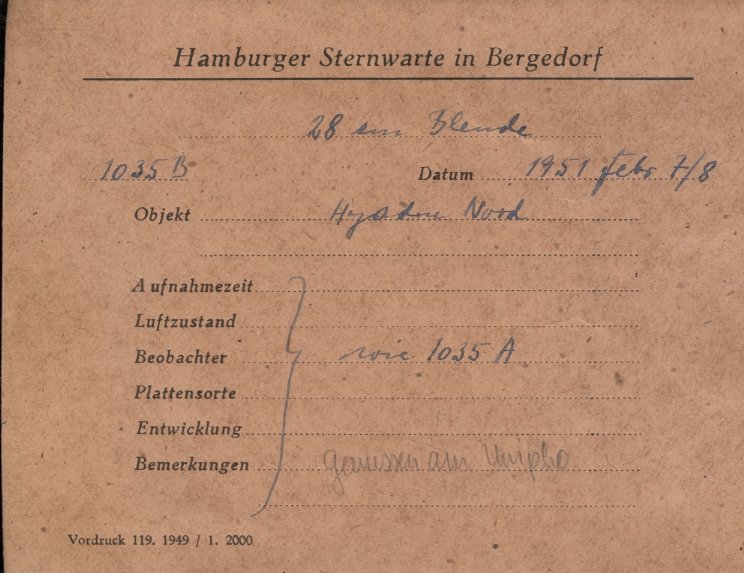 Hamburger Sternwarte in Bergedorf
28 cm Blende
1035 B Datum 1951 Febr 7/8
Objekt Hyaden Nord
Aufnahmezeit
Luftzustand
Beobachter wie 1035 A
Plattensorte
Entwicklung
Bemerkungen gemessen am Unipho
Vordruck 119. 1949 / 1. 2000